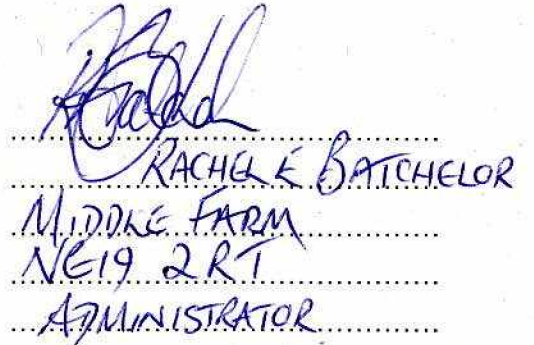 RACHEL E BATCHELOR
MIDDLE FARM
NE19 2RT
ADMINISTRATOR